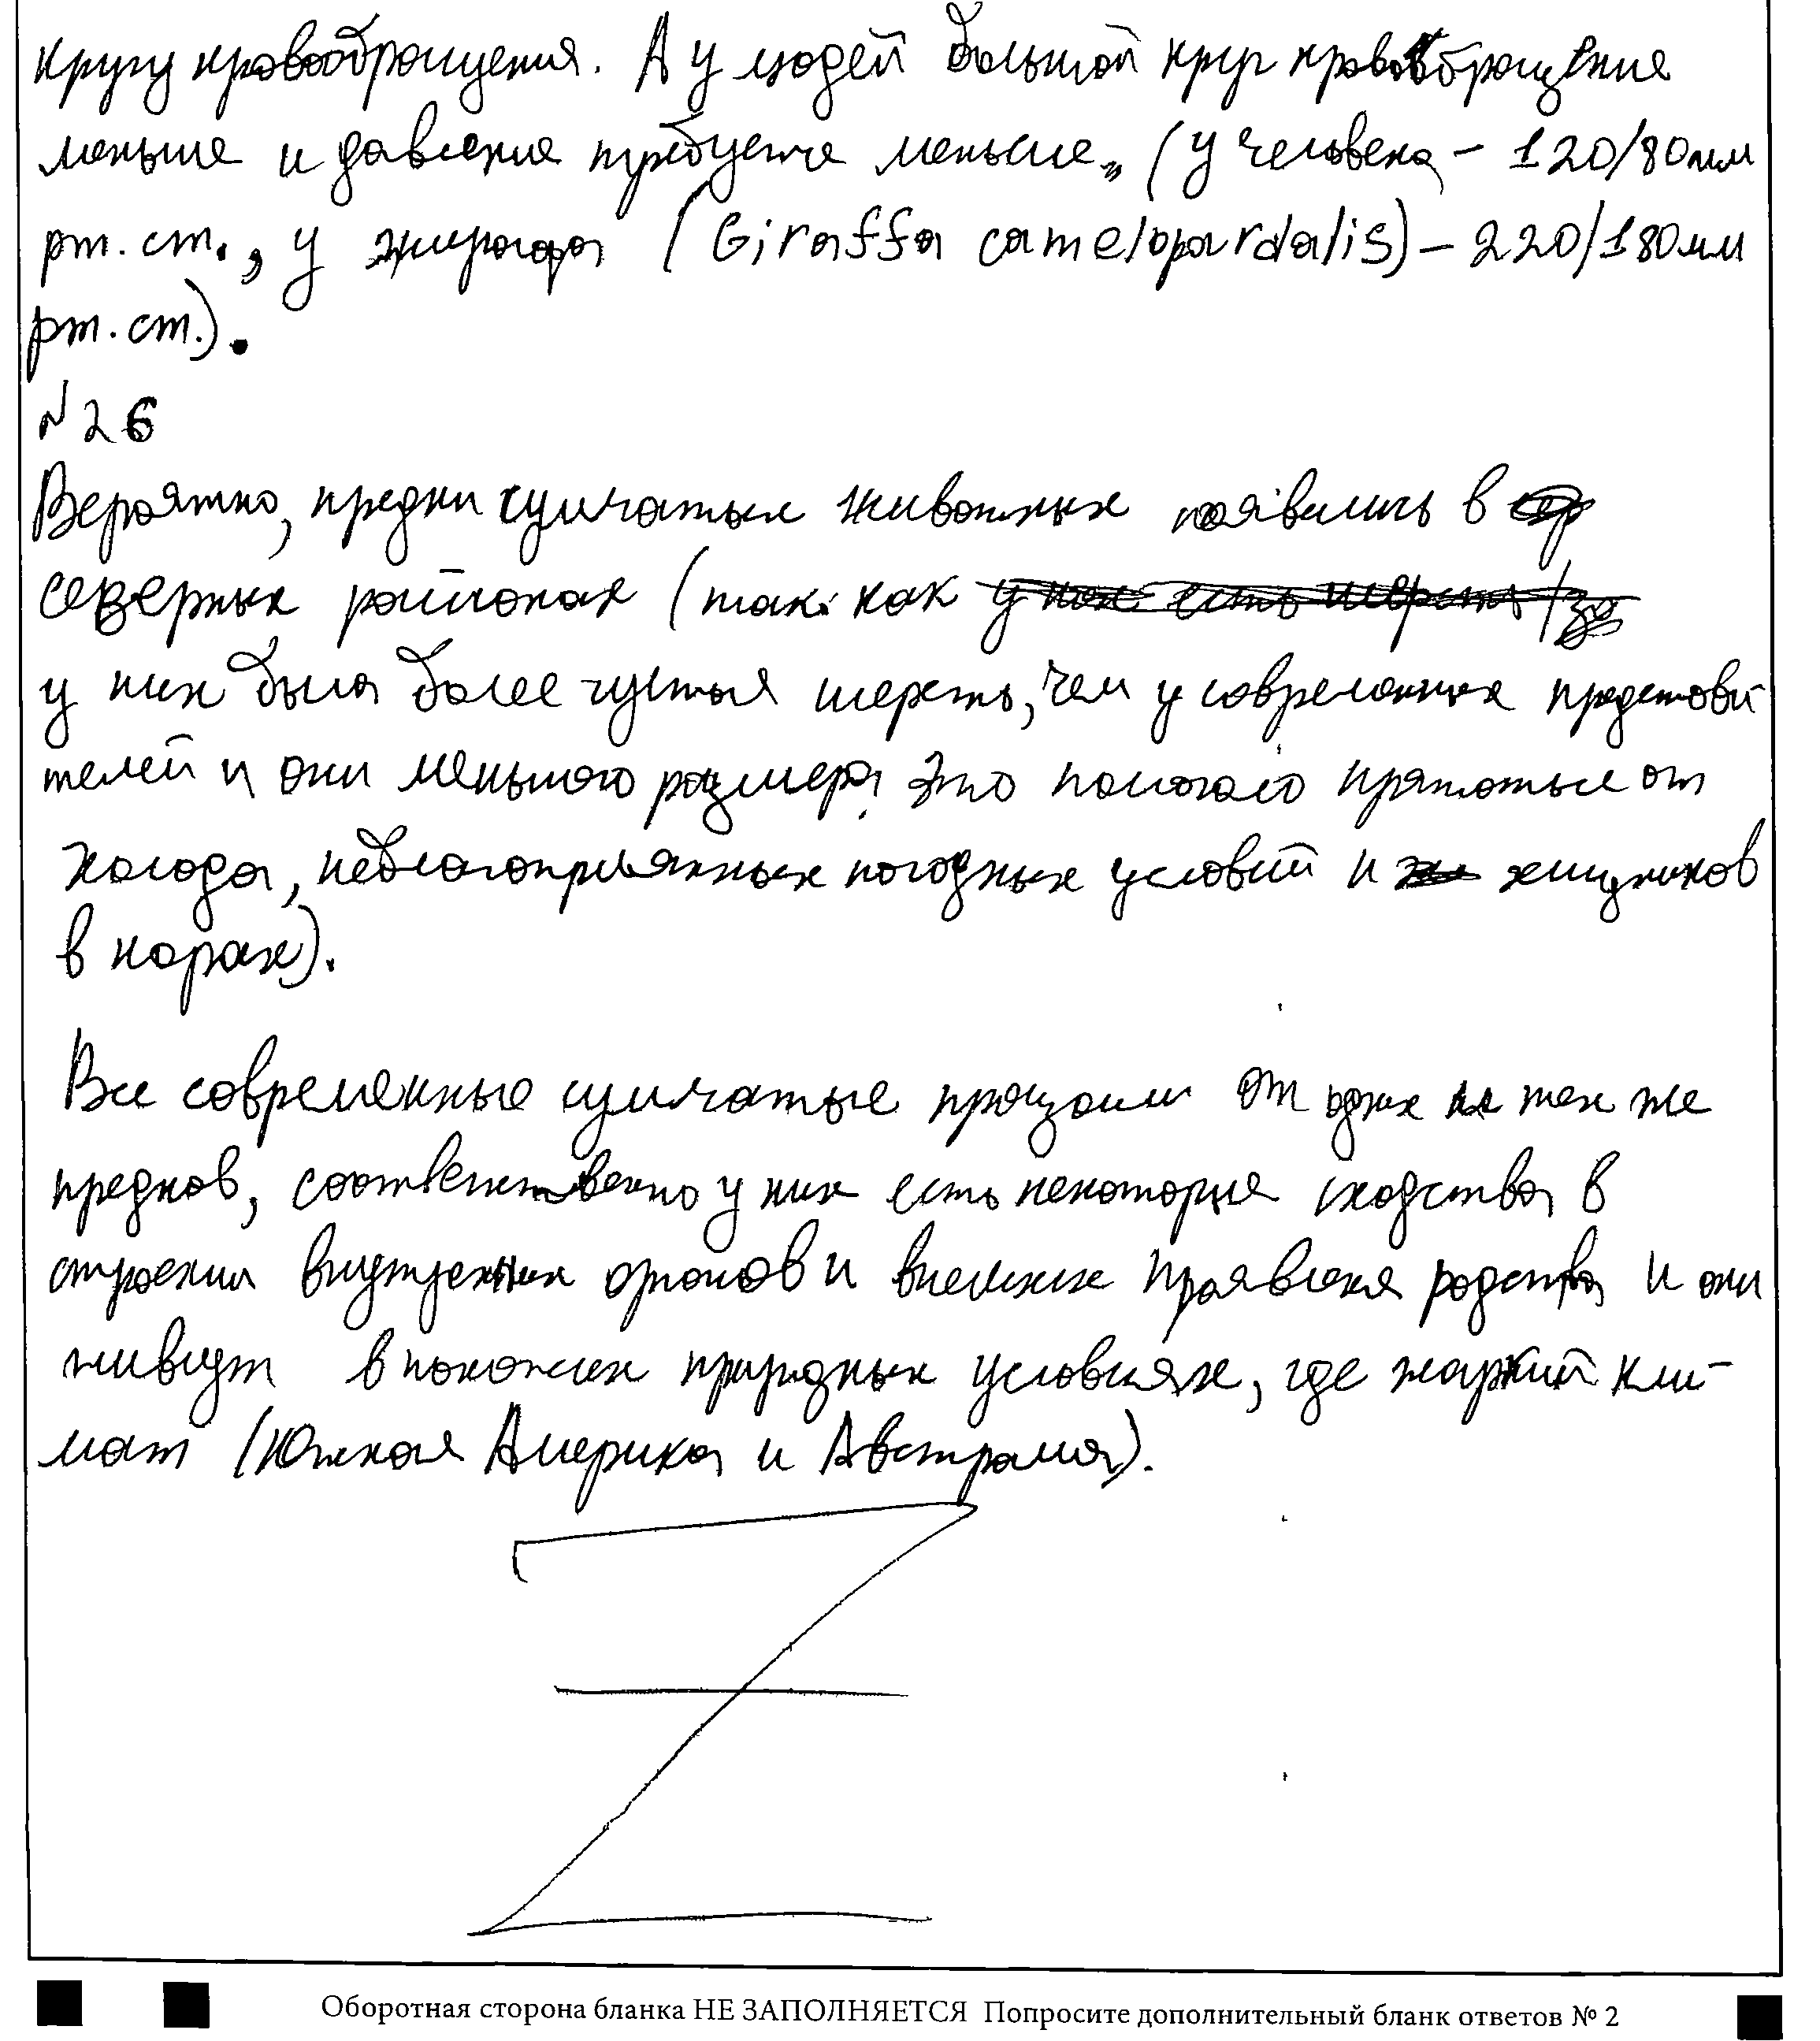 кругу кровообращения. А у людей большой круг кровообращения
меньше и давление требуется меньше, (у человека – 120/80 мм
рт. ст., у жирафа (Giraffa camelopardalis) – 220/180 мм
рт. ст.).
№26
Вероятно, предки сумчатых животных появились в
северных районах (так как
у них была более густая шерсть, чем у современных представи
телей и они меньшего размера, это помогало прятаться от
холода, неблагоприятных погодных условий и хищников
в норах).
Все современные сумчатые произошли от одних и тех же
предков, соответственно у них есть некоторые сходства в
строении внутренних органов и внешних проявления родства и они
живут в похожих природных условиях, где жаркий кли-
мат (Южная Америка и Австралия).
Оборотная сторона бланка НЕ ЗАПОЛНЯЕТСЯ Попросите дополнительный бланк ответов № 2